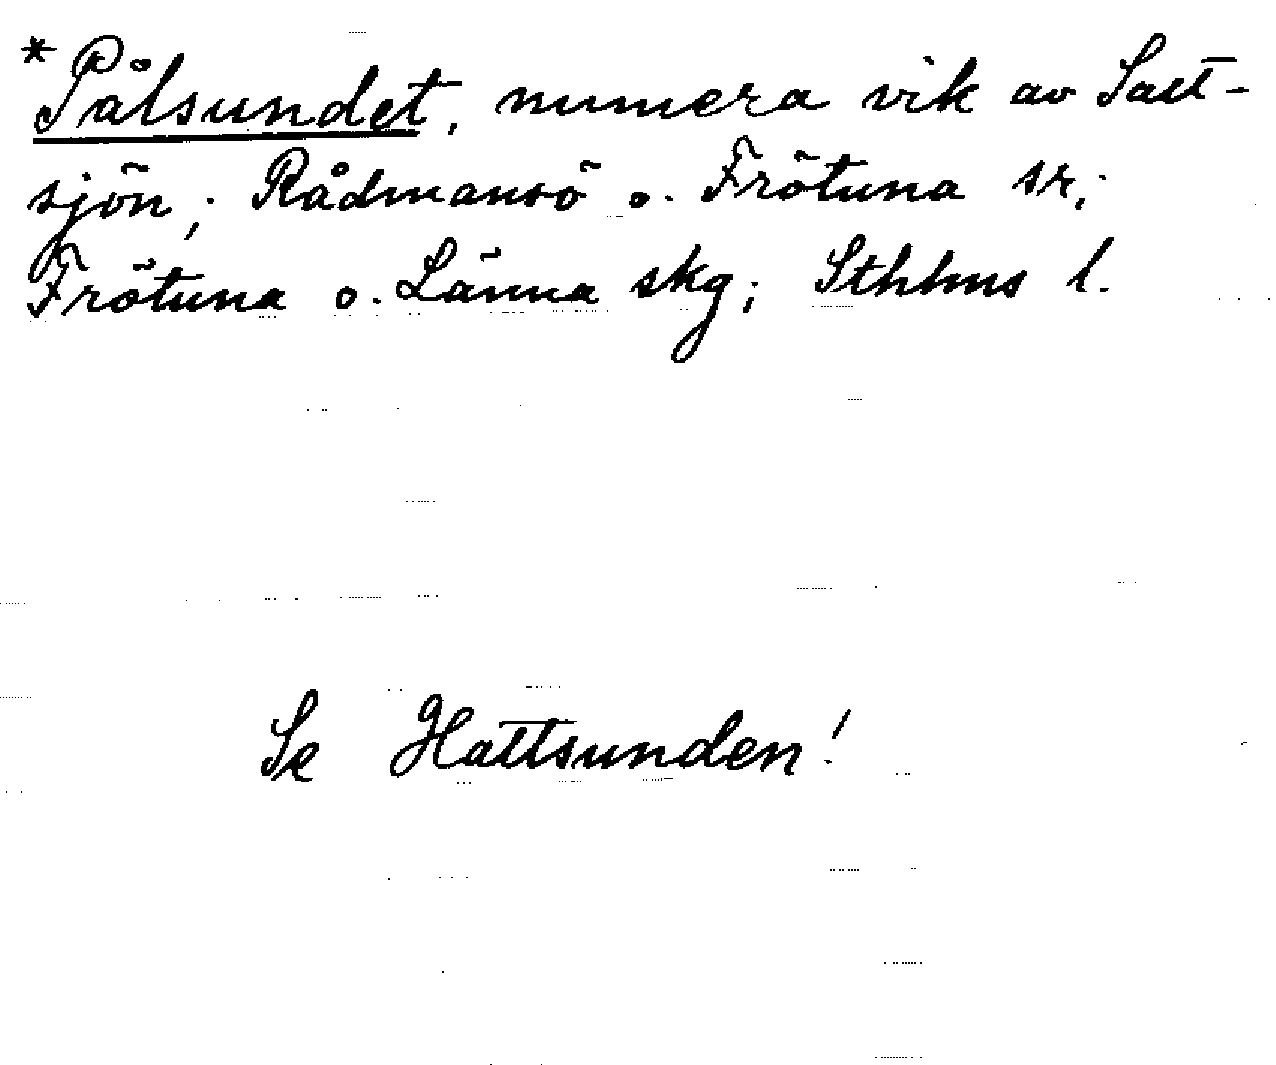 *Pålsundet, numera vik av Salt-
sjön; Rådmansö o. Frötuna sr;
Frötuna o. Länna skg; Sthlms l.
Se Hattsunden!